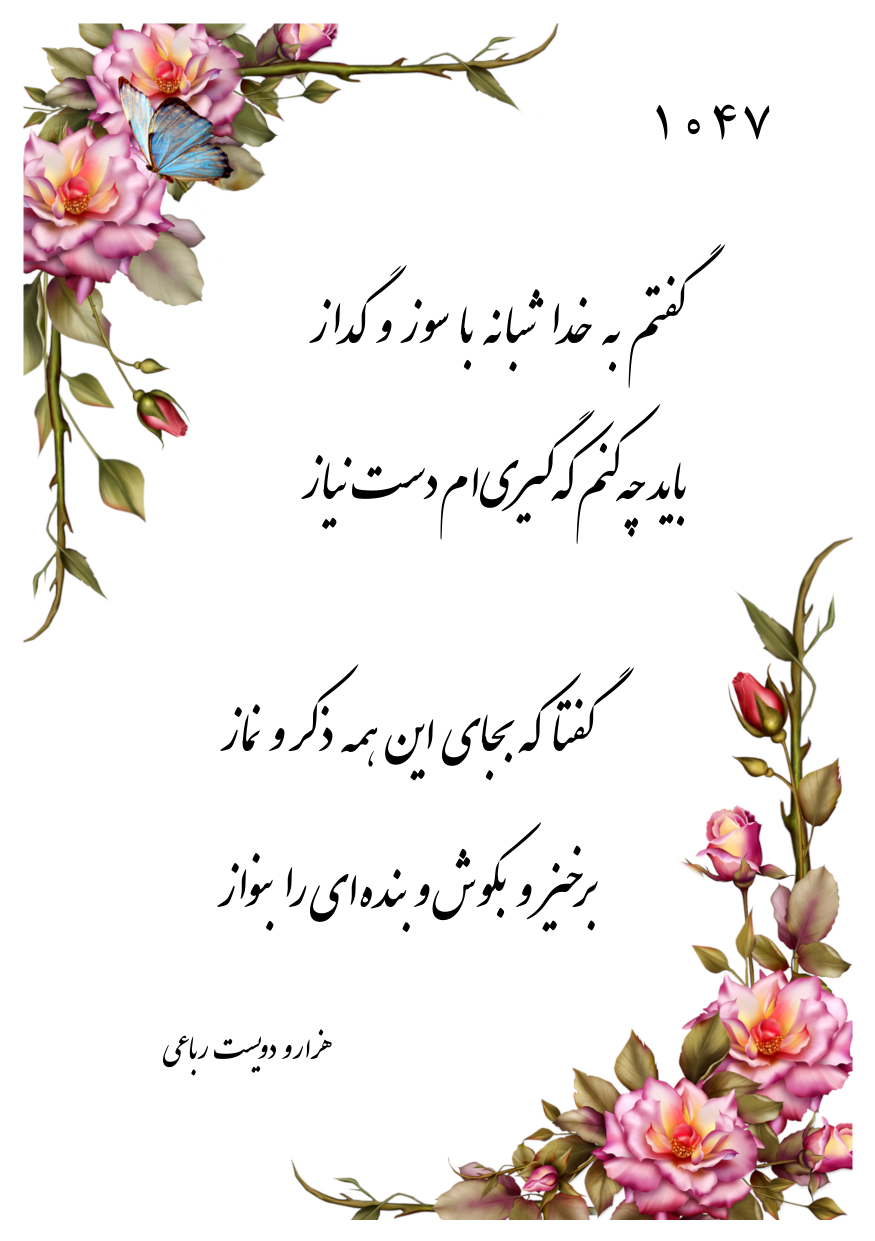 ۱۰۴۷
گفتم به خدا شبانه با سوز و گداز
باید چه کنم که گیری ام دست نیاز
گفتا که بجای این همه ذکر و نماز
برخیز و بکوش و بنده ای را بنواز
هزار و دویست رباعی